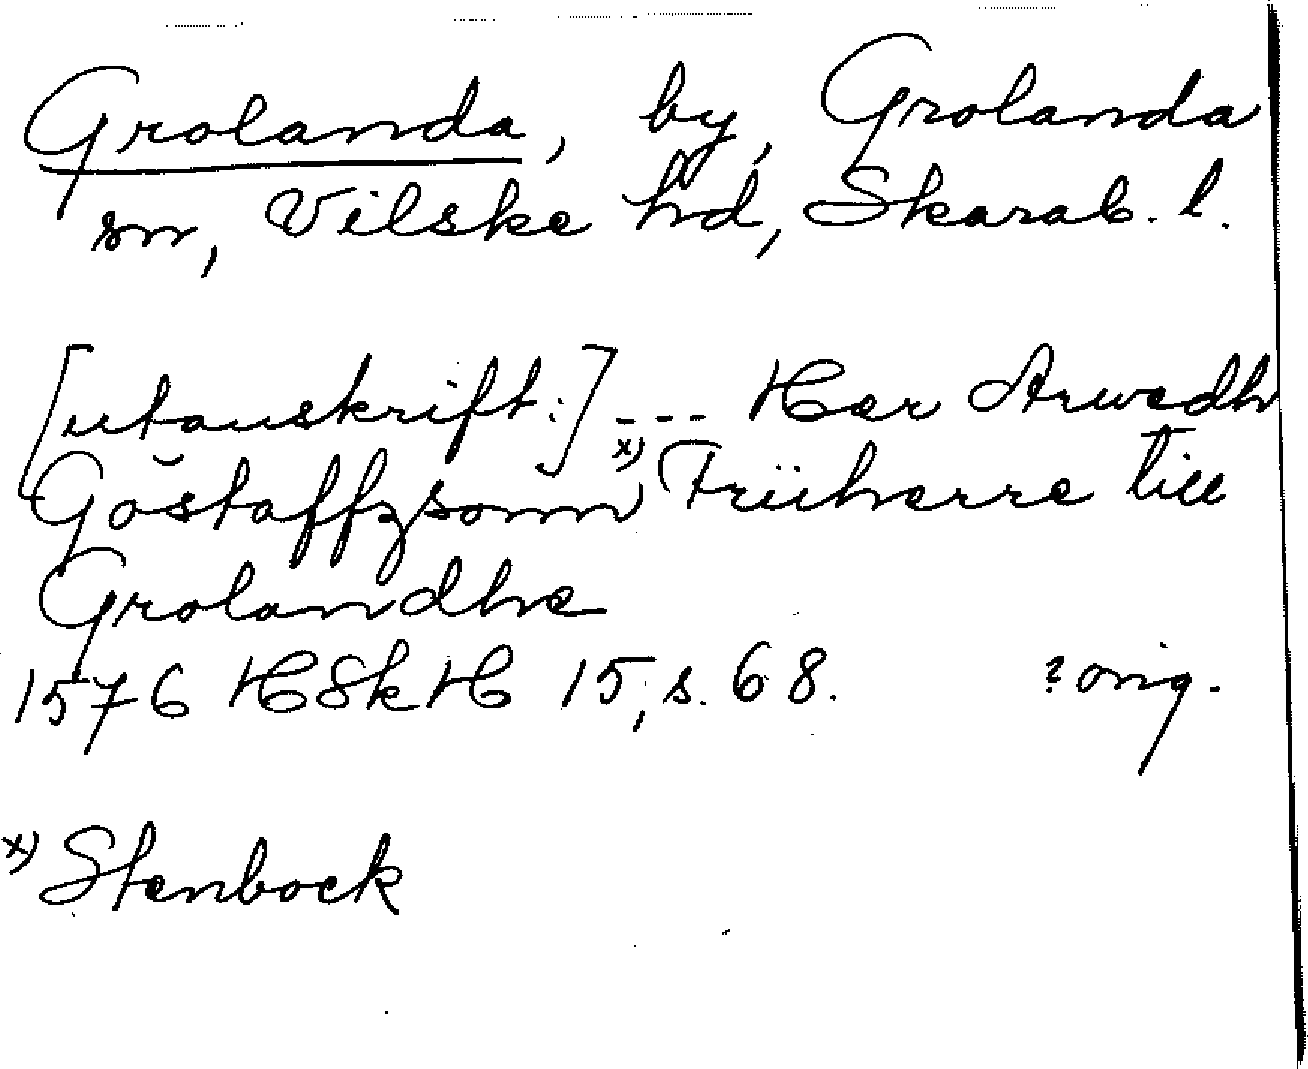 Grolanda, by, Grolanda
sn, Vilske hd, Skarab. l.
[utanskrift:] --- Her Arwedh
Göstaffzsonn x) Friiherre till
Grolandhe
1576 HSkH 15, s. 68. ? orig.
x) Stenbock